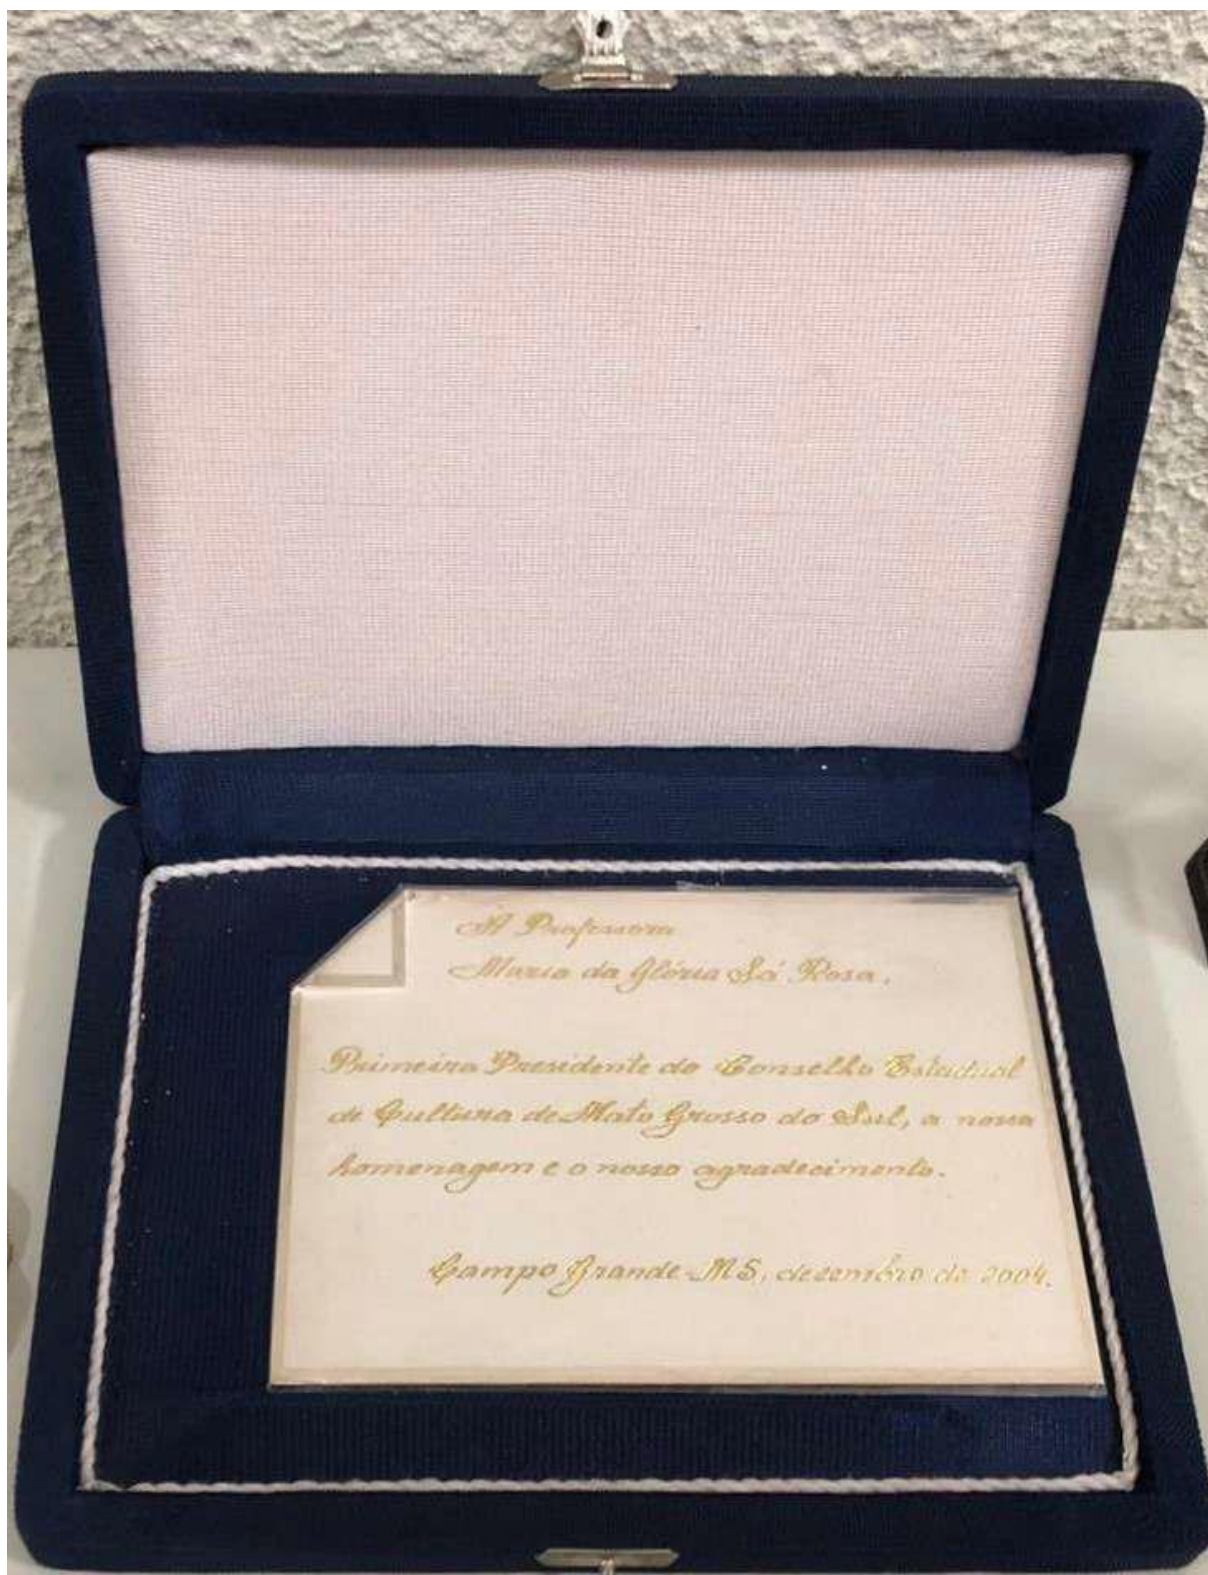 À Professora
Maria da Glória Sá Rosa,
Primeira Presidente do Conselho Estadual
de Cultura de Mato Grosso do Sul, a nossa
homenagem e o nosso agradecimento.
Campo Grande-MS, dezembro de 2004.